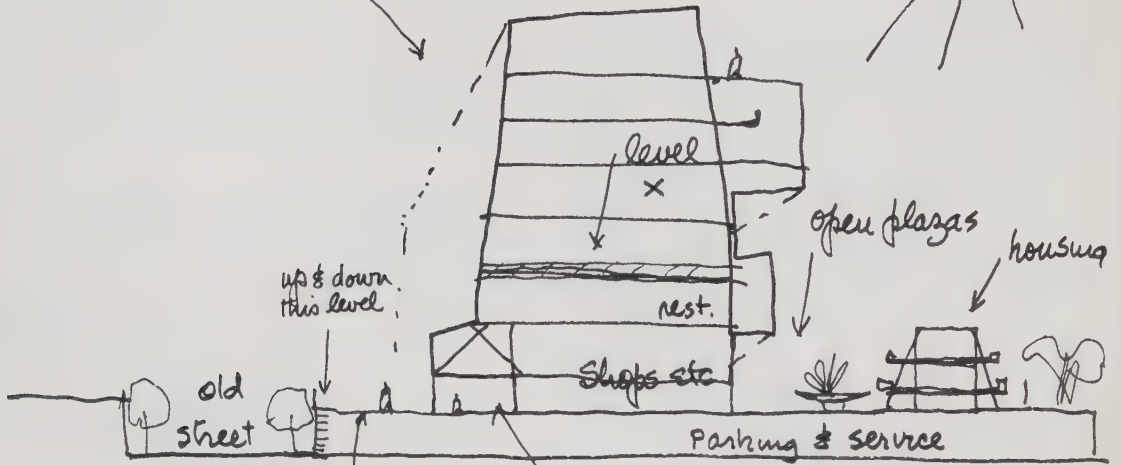 level
X
open plazas
housing
up & down
this level
rest.
Shops etc
old
street
Parking & service